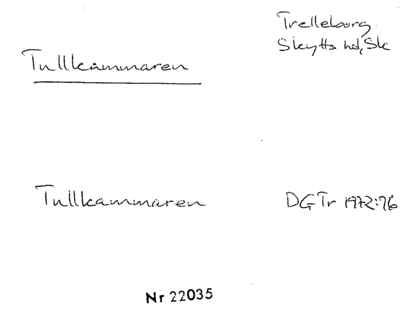 Trelleborg
Skytts hd, Sk
Tullkammaren
Tullkammaren
DGTr 1972:76
Nr 22035